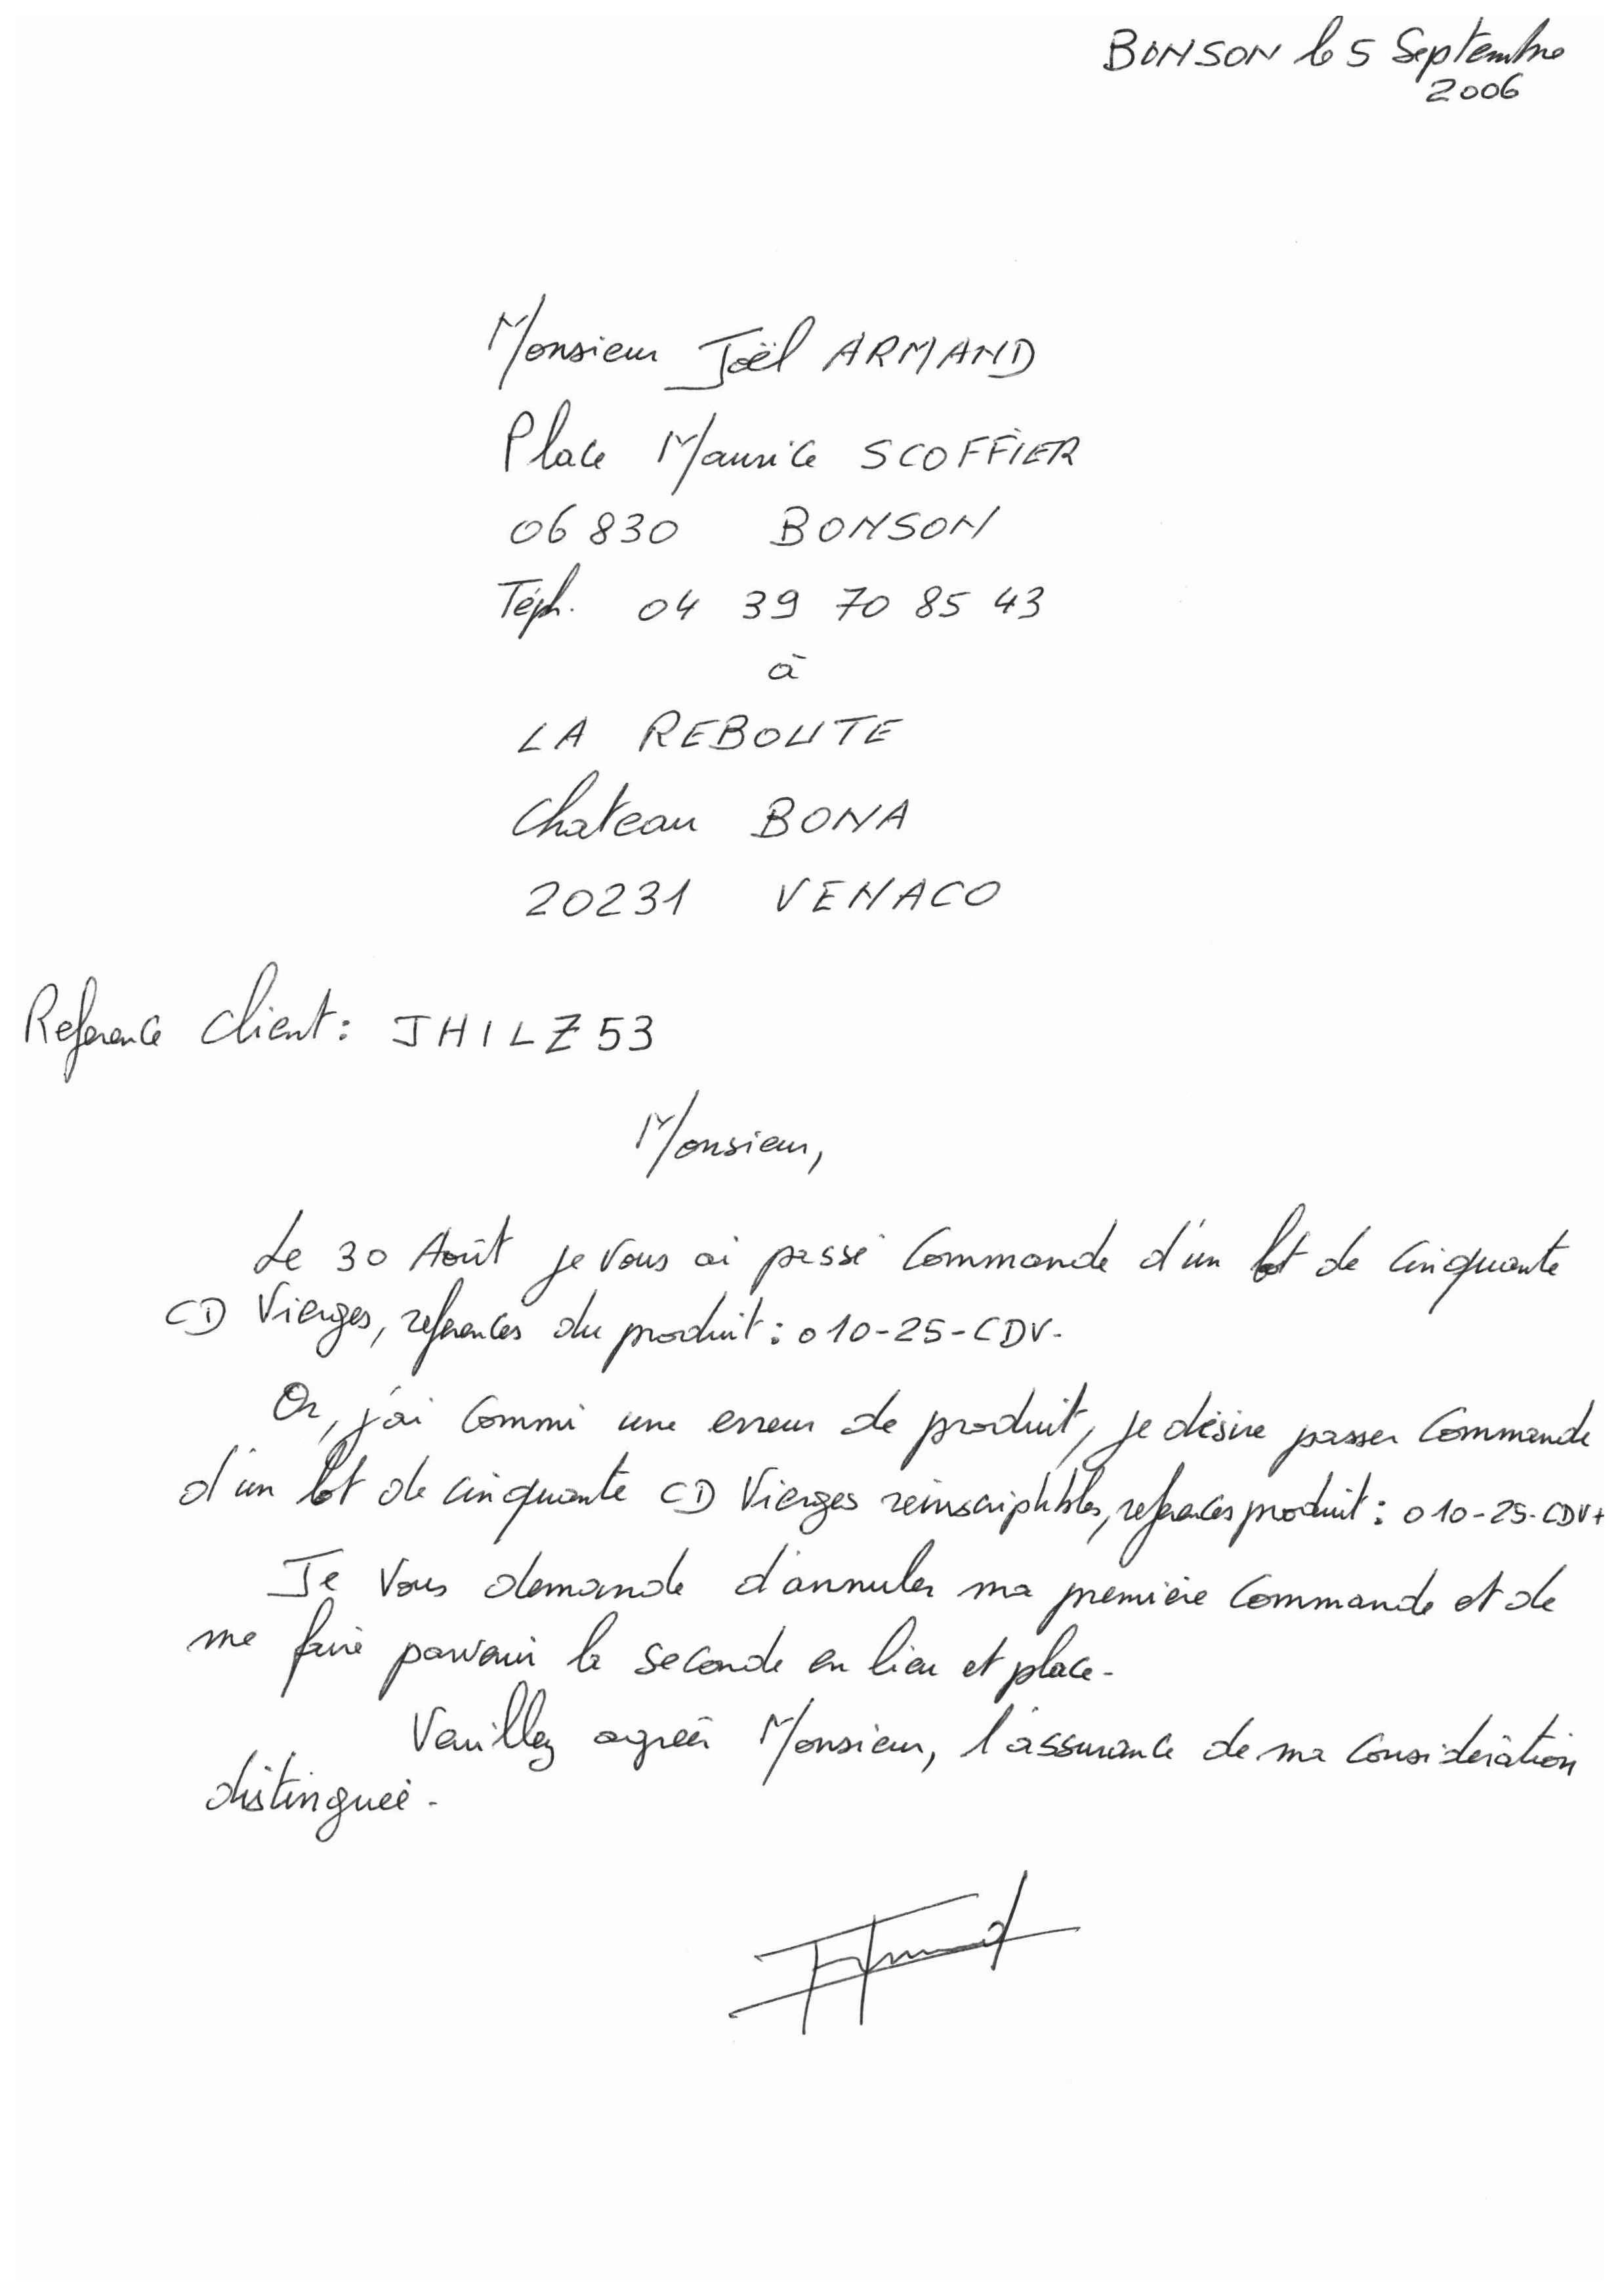 BONSON le 5 Septembre
2006
Monsieur Joël ARMAND
Place Maurice SCOFFIER
06 830 BONSON
Téph. 04 39 70 85 43
à
LA REBOUTE
Chateau BONA
20231 VENACO
Reference client : JHILZ53
Monsieur,
Le 30 Août je vous ai passé commande d'un lot de cinquante
CD Vierges, references du produit : 010-25-CDV.
Or, j'ai commi une erreur de produit, je désire passer commande
d'un lot de cinquante CD Vierges réinscriptibles, references produit : 010-25-CDV+
Je vous demande d'annuler ma première commande et de
me faire parvenir la seconde en lieu et place.
Veuillez agréer Monsieur, l'assurance de ma considération
distinguée.